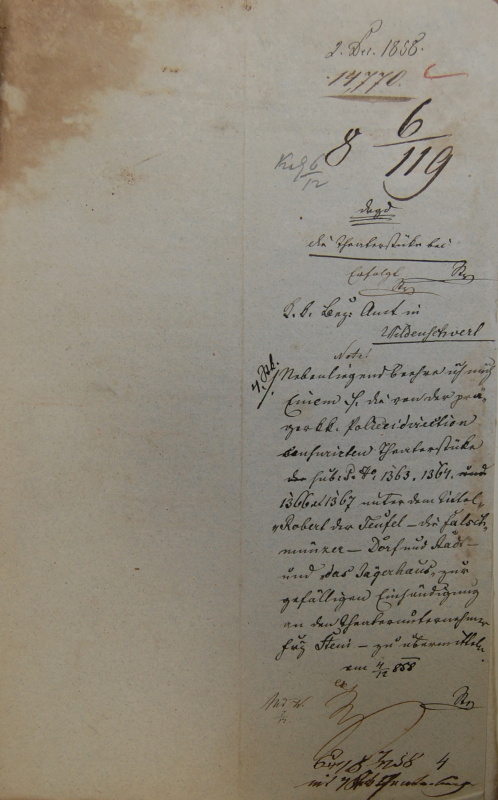 2. Dec. 1858.
14,770.
8 6/119
6/12
die Theaterstücke bei
Erfolgt
K. k. Bez. Amt in
Wildenschwert
Note!
Nebenliegend beehre ich mich
Einem H. die von der pra-
ger kk. Polizeidirection
censurirten Theaterstücke
der sub. P. No 1363. 1364. und
1366 et 1367 unter dem Titel,
"Robert der Teufel – die Falsch-
münzer – Dorf und Stadt –
und das Jägerhaus, zur
gefälligen Einhändigung
an den Theaterunternehmer
– zu übermitteln.
am 4/12 858
4
mit